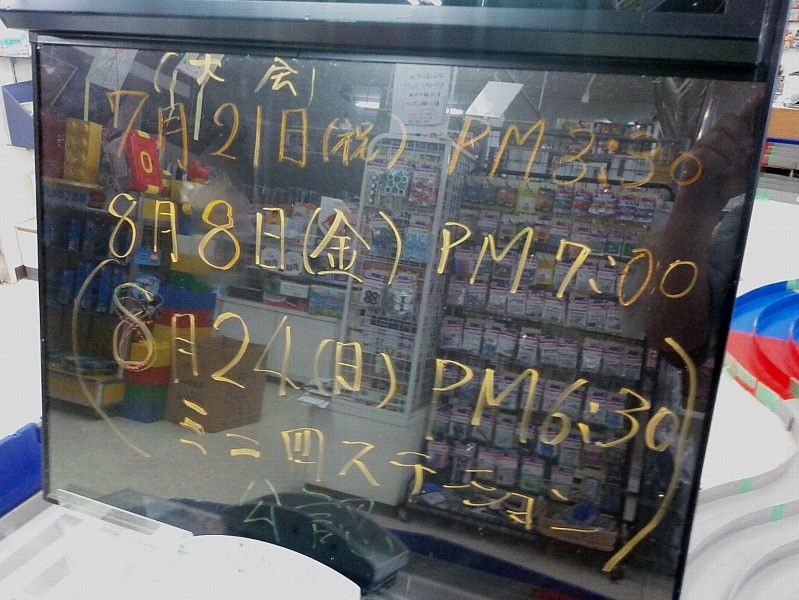 (大会)
7月21日(祝) PM3:30
8月8日(金) PM7:00
(8月24(日) PM6:30
ミニ四ステーション)
公認